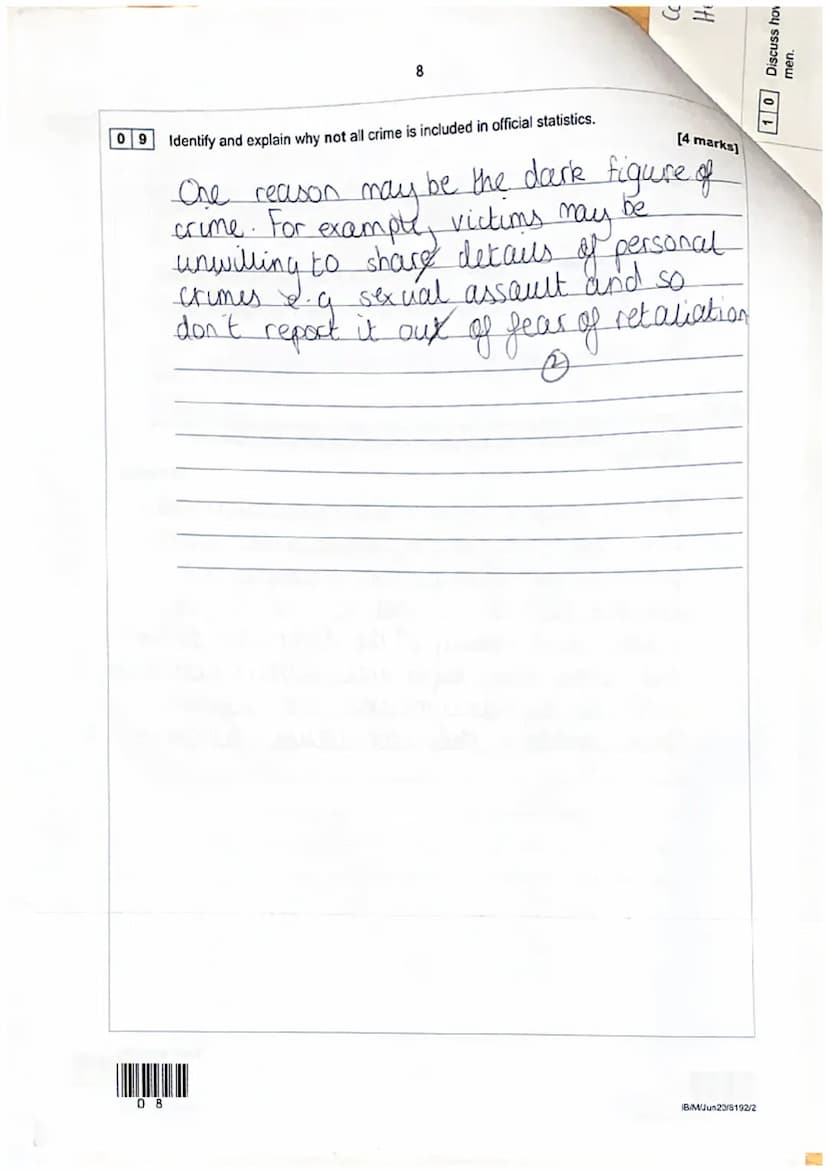 8
0 9 Identify and explain why not all crime is included in official statistics.
[4 marks]
One reason may be the dark figure of
crime. For example, victims may be
unwilling to share details of personal
crimes e.g sexual assault and so
don't report it out of fear of retaliation
2
0 8
IB/M/Jun23/8192/2
1 0 Discuss how
men.